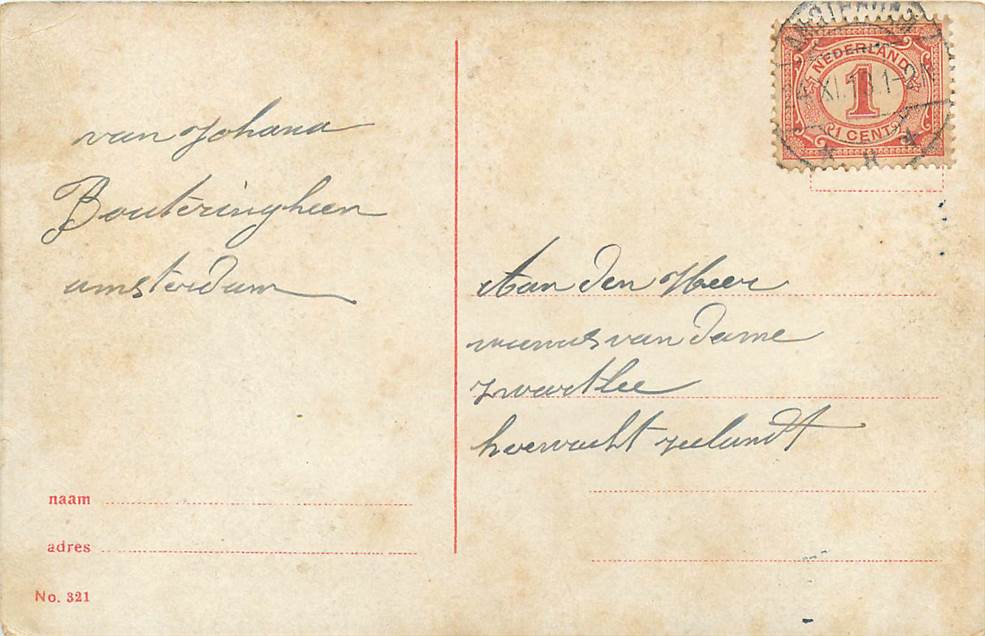 van Johana
Bouteringheen
amsterdam
naam
adres
No. 321
AMSTERDAM
NEDERLAND
XI.13.1-2
1
1 CENT
Aan den Heer
van dame
zwartlee
zeelandt